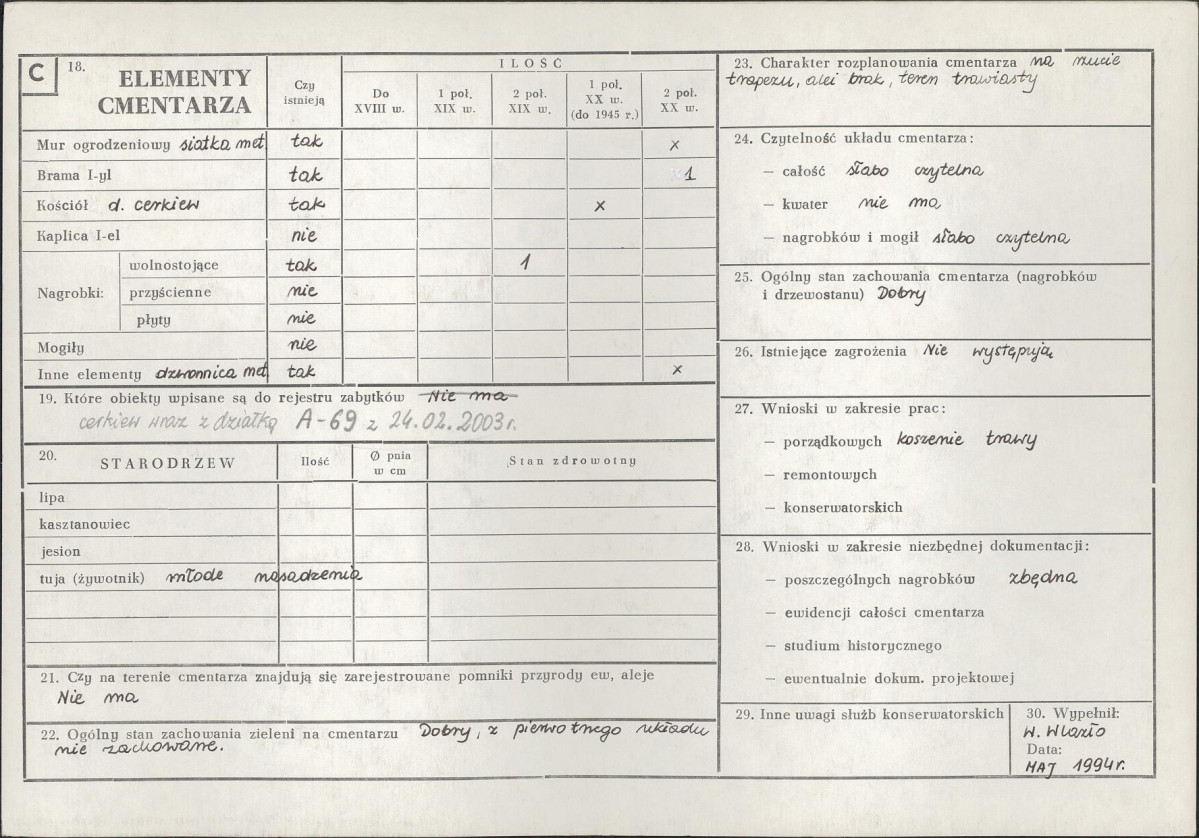 C 18. ELEMENTY CMENTARZA
Czy istnieją
ILOŚĆ
Do XVIII w.
1 poł. XIX w.
2 poł. XIX w.
1 poł. XX w. (do 1945 r.)
2 poł. XX w.
Mur ogrodzeniowy siatka met. tak x
Brama I-yl tak 1
Kościół d. cerkiew tak x
Kaplica I-el nie
Nagrobki:
wolnostojące tak 1
przyścienne nie
płyty nie
Mogiły nie
Inne elementy dzwonnica met. tak x
19. Które obiekty wpisane są do rejestru zabytków Nie ma
cerkiew wraz z działką A-69 z 24.02.2003 r.
20. STARODRZEW
Ilość
Ø pnia w cm
Stan zdrowotny
lipa
kasztanowiec
jesion
tuja (żywotnik) młode nasadzenia
21. Czy na terenie cmentarza znajdują się zarejestrowane pomniki przyrody ew, aleje
Nie ma
22. Ogólny stan zachowania zieleni na cmentarzu Dobry, z pierwotnego układu
nie zachowane.
23. Charakter rozplanowania cmentarza na rzucie
trapezu, alei brak, teren trawiasty
24. Czytelność układu cmentarza:
— całość słabo czytelna
— kwater nie ma
— nagrobków i mogił słabo czytelna
25. Ogólny stan zachowania cmentarza (nagrobków
i drzewostanu) Dobry
26. Istniejące zagrożenia Nie występują
27. Wnioski w zakresie prac:
— porządkowych koszenie trawy
— remontowych
— konserwatorskich
28. Wnioski w zakresie niezbędnej dokumentacji:
— poszczególnych nagrobków zbędna
— ewidencji całości cmentarza
— studium historycznego
— ewentualnie dokum. projektowej
29. Inne uwagi służb konserwatorskich
30. Wypełnił:
W. Wlazło
Data:
MAJ 1994 r.